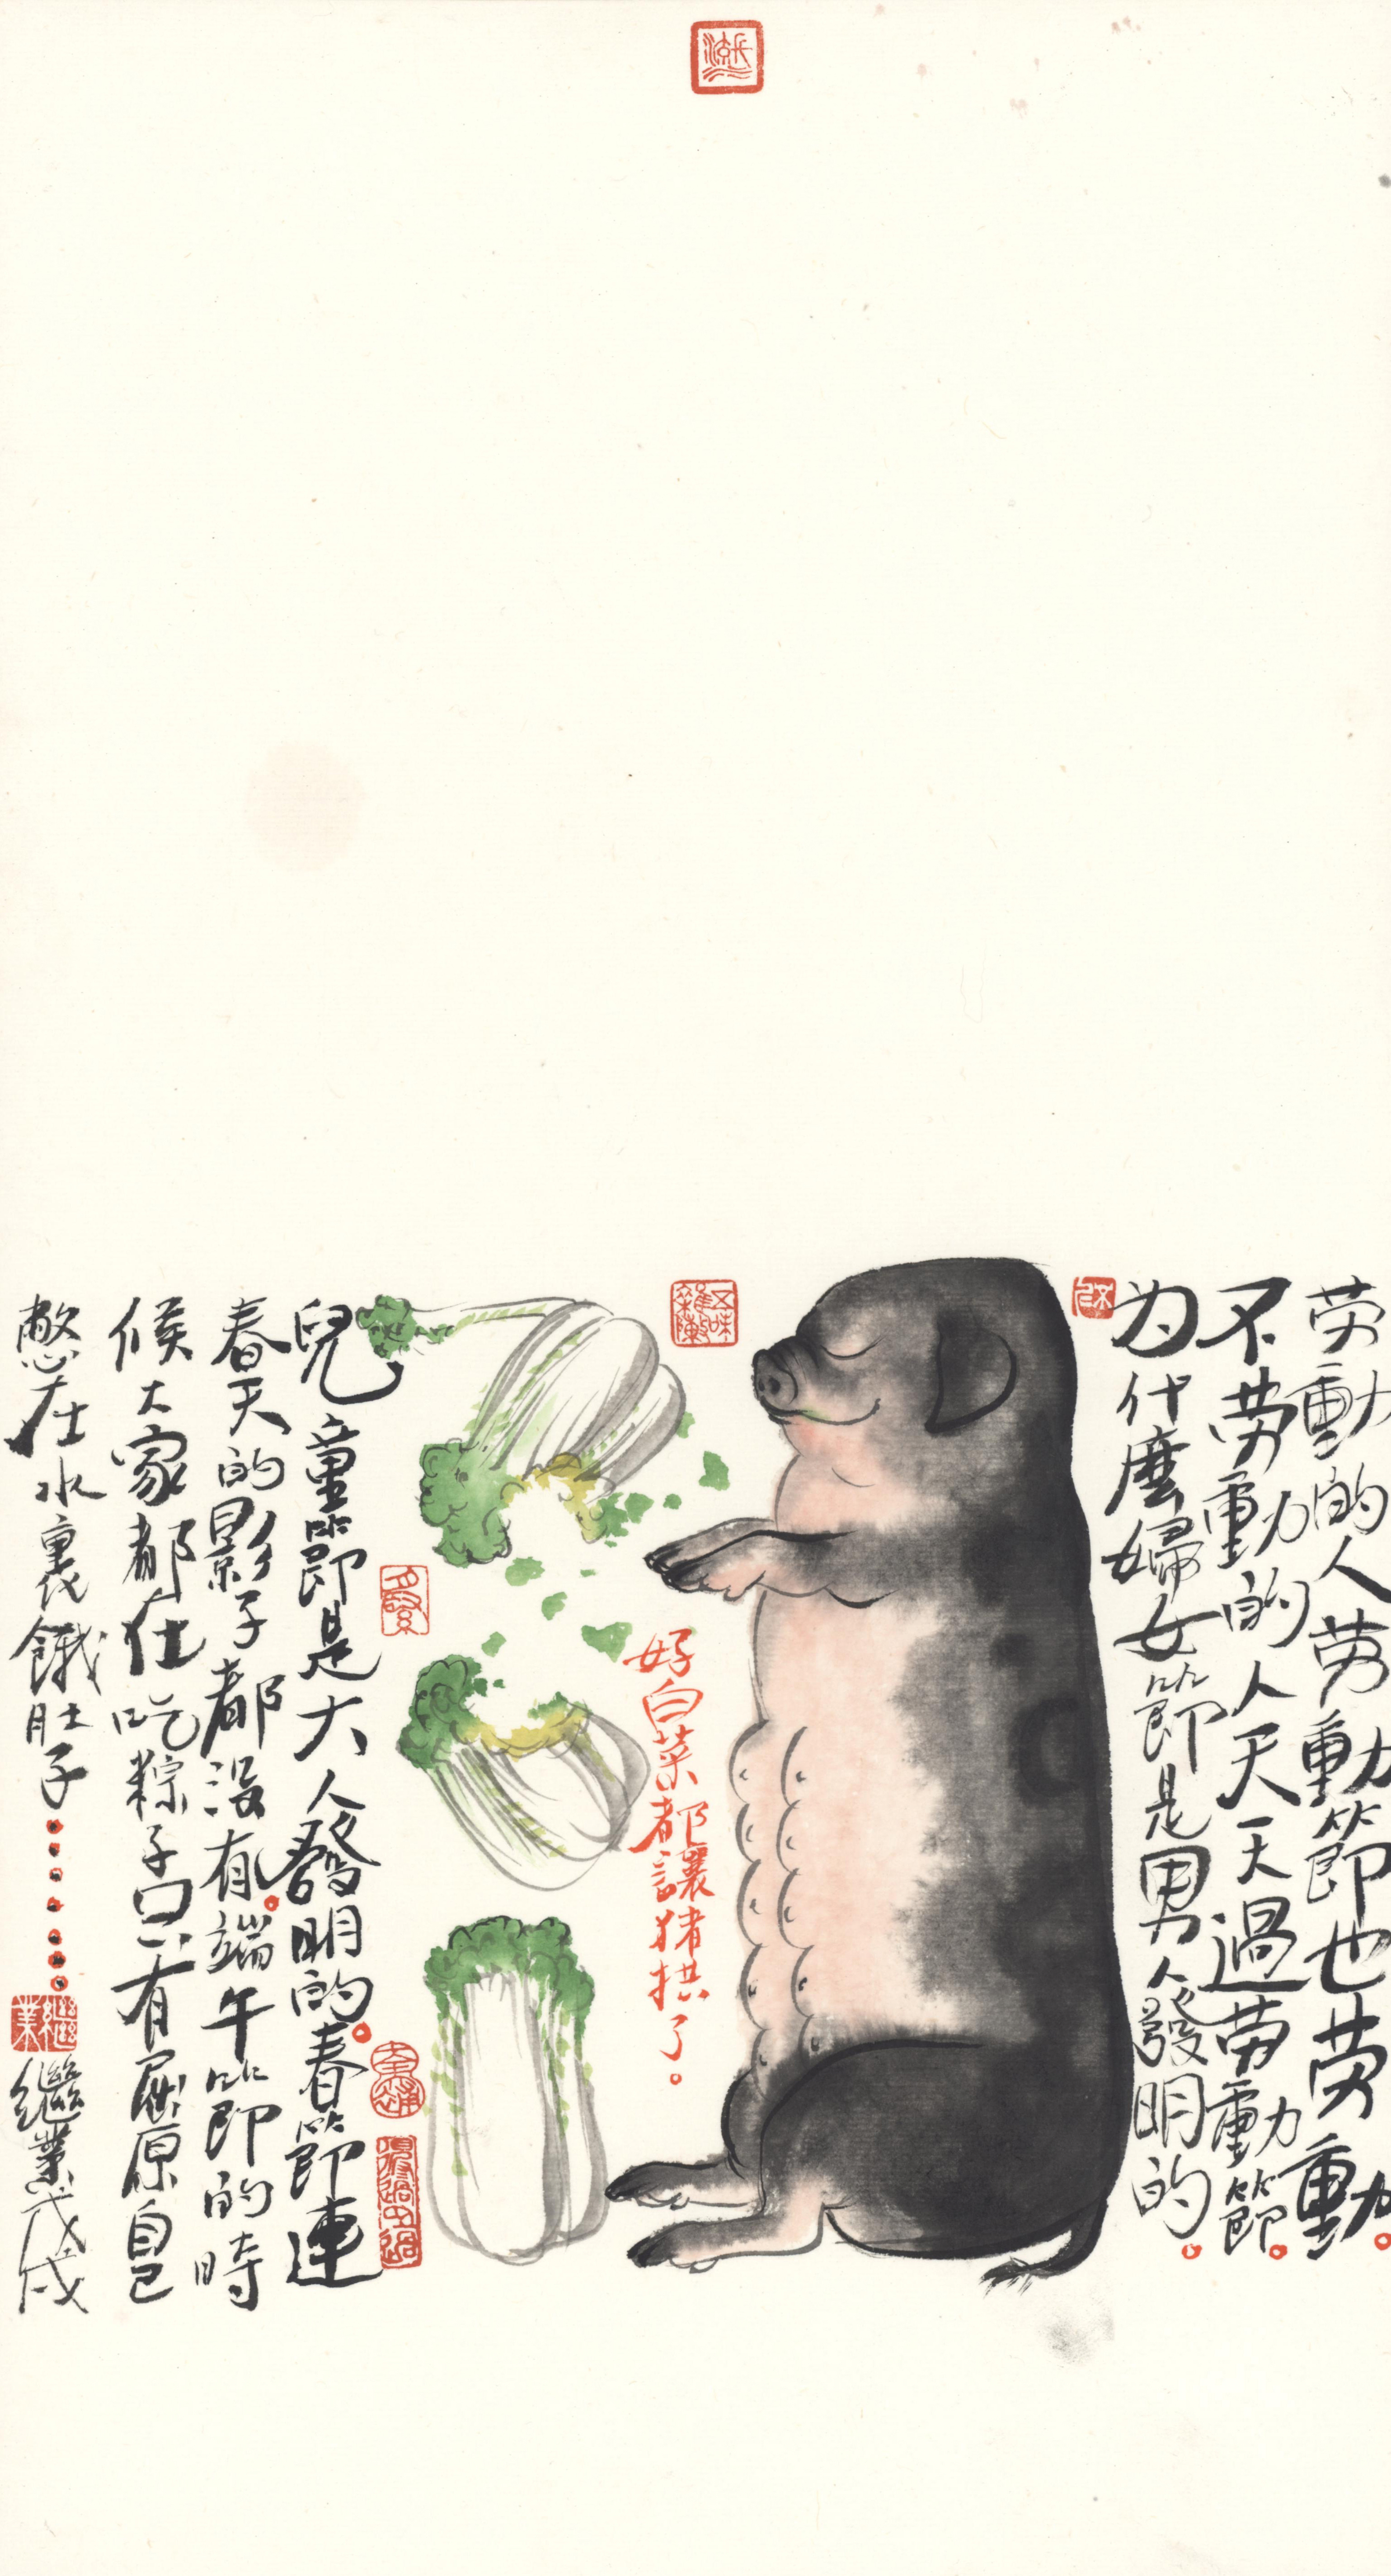 劳動的人劳動節也劳動。
不劳動的人天天過劳動節。
为什麼婦女節是男人發明的。
好白菜都讓猪拱了。
兒童節是大人發明的。春節連
春天的影子都没有。端午節的時
候大家都在吃粽子只有屈原自己
憋在水裏餓肚子……。
繼業戊戌
五味雜陳
繼業